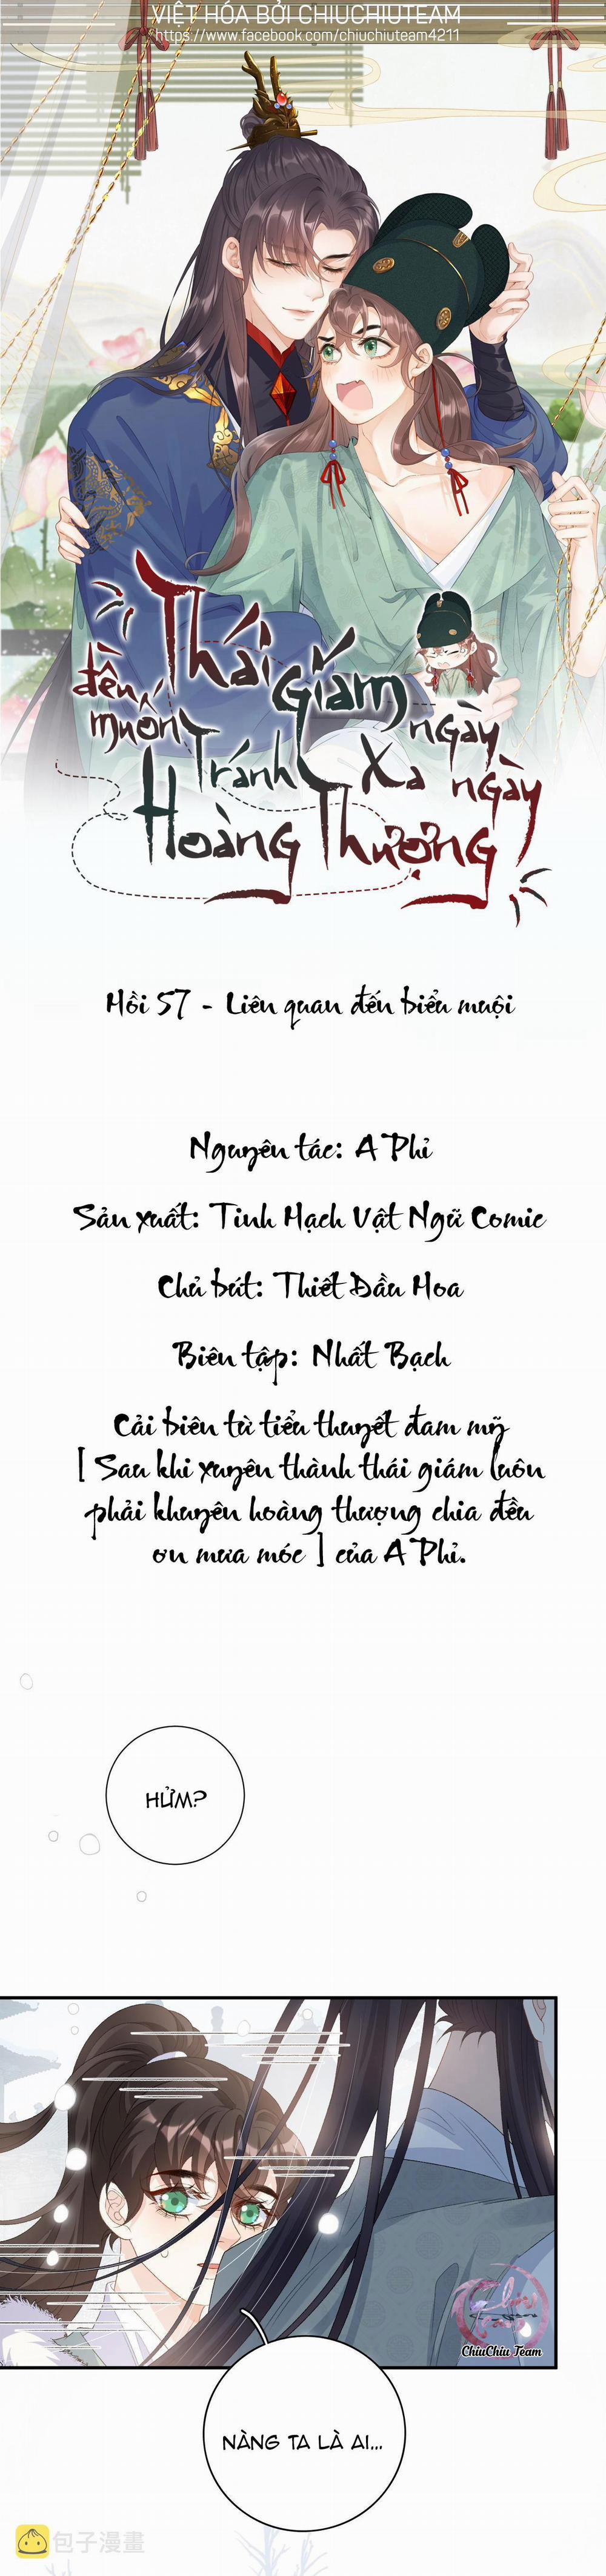 VIỆT HÓA BỞI CHIUCHIUTEAM
https://www.facebook.com/chiuchiuteam4211
Thái Giám ngày ngày
đều muốn Tránh Xa
Hoàng Thượng
Hồi 57 - Liên quan đến biểu muội
Nguyên tác: A Phỉ
Sản xuất: Tinh Mạch Vật Ngữ Comic
Chủ bút: Thiết Đầu Hoa
Biên tập: Nhất Bạch
Cải biên từ tiểu thuyết đam mỹ
[ Sau khi xuyên thành thái giám luôn
phải khuyên hoàng thượng chia đều
ơn mưa móc ] của A Phỉ.
HỬM?
ChiuChiu Team
NÀNG TA LÀ AI...
包子漫畫